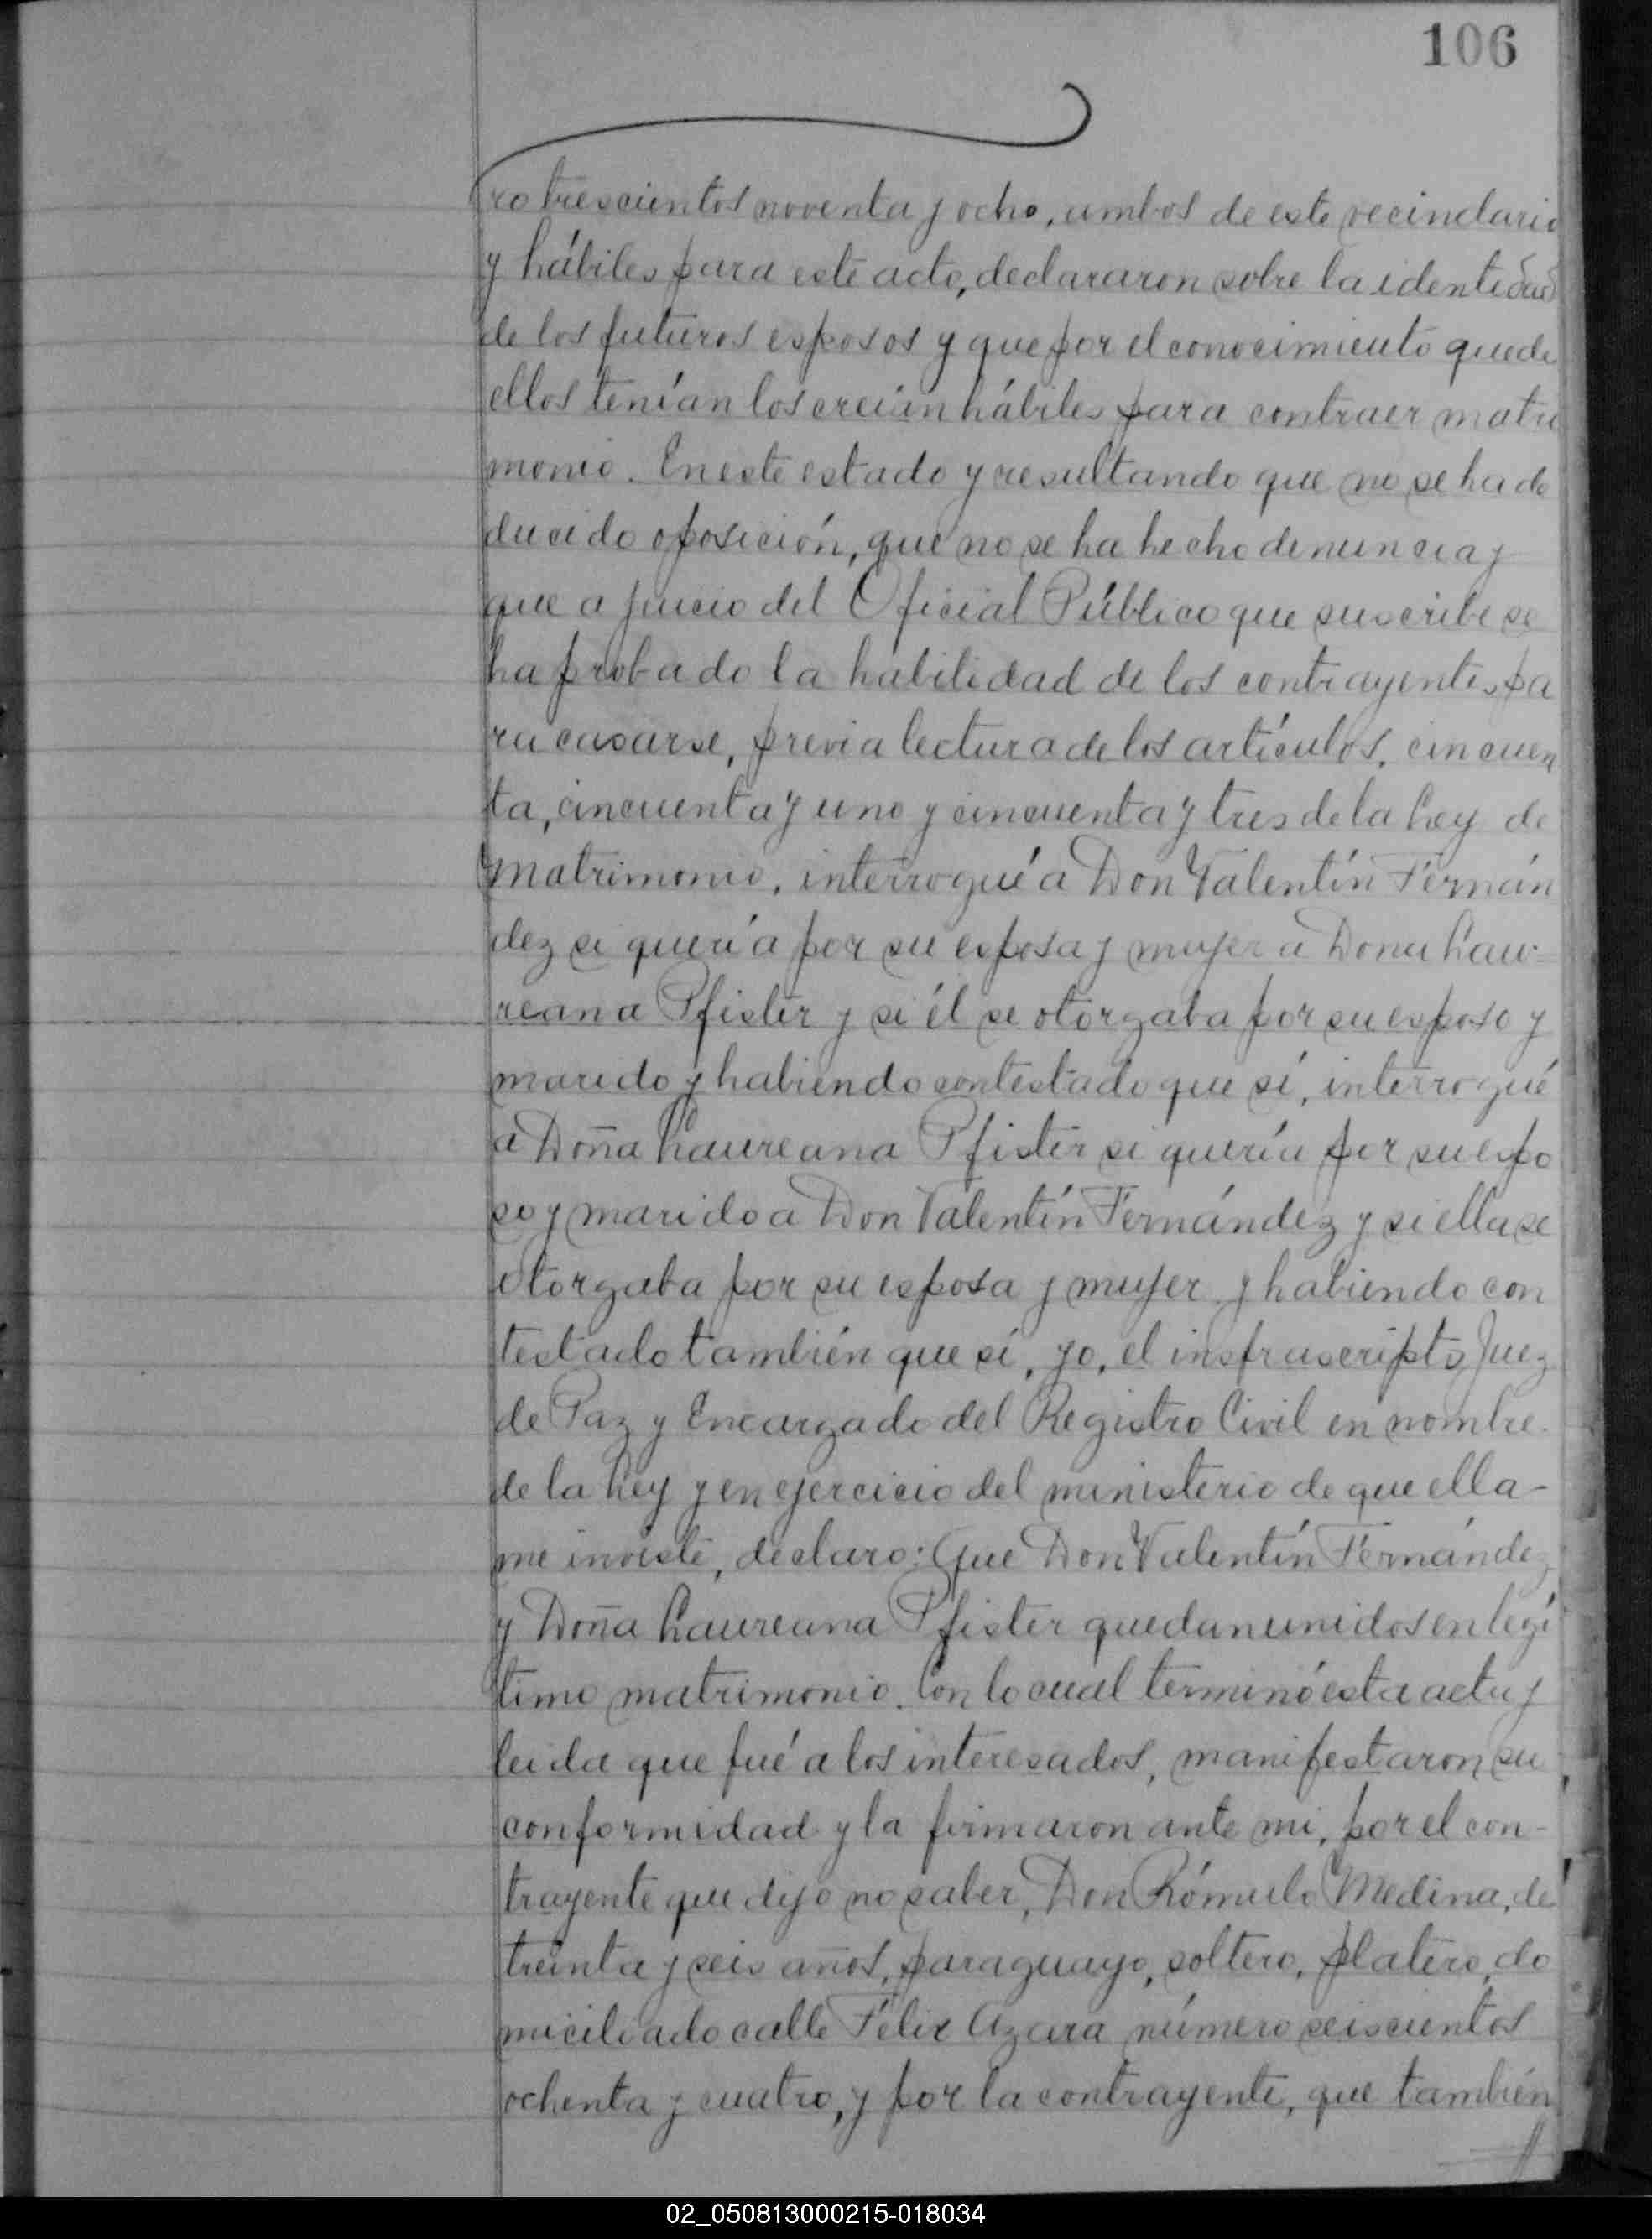 106
ro trescientos noventa y ocho, ambos de este vecindario
y hábiles para este acto, declararon sobre la identidad
de los futuros esposos y que por el conocimiento que de
ellos tenían los creían hábiles para contraer matri
monio. En este estado y resultando que no se ha de
ducido oposición, que no se ha hecho denuncia y
que a juicio del Oficial Público que suscribe se
ha probado la habilidad de los contrayentes pa
ra casarse, previa lectura de los artículos, cincuen
ta, cincuenta y uno y cincuenta y tres de la Ley de
Matrimonio, interrogué a Don Valentín Fernán
dez si quería por su esposa y mujer a Dona Lau-
reana Pfister y si él se otorgaba por su esposo y
marido y habiendo contestado que sí, interrogué
a Doña Laureana Pfister si quería por su espo
so y marido a Don Valentín Fernández y si ella se
otorgaba por su esposa y mujer y habiendo con
testado también que sí, yo, el insfrascripto Juez
de Paz y Encargado del Registro Civil en nombre
de la Ley y en ejercicio del ministerio de que ella-
me inviste, declaro: Que Don Valentín Fernández
y Doña Laureana Pfister quedan unidos en legí
timo matrimonio. Con lo cual terminó esta acta y
leida que fué a los interesados, manifestaron su
conformidad y la firmaron ante mi, por el con-
trayente que dijo no saber, Don Rómulo Medina, de
treinta y seis años, paraguayo, soltero, platero, do
miciliado calle Félix Azara número seiscientos
ochenta y cuatro, y por la contrayente, que también
02_050813000215-018034